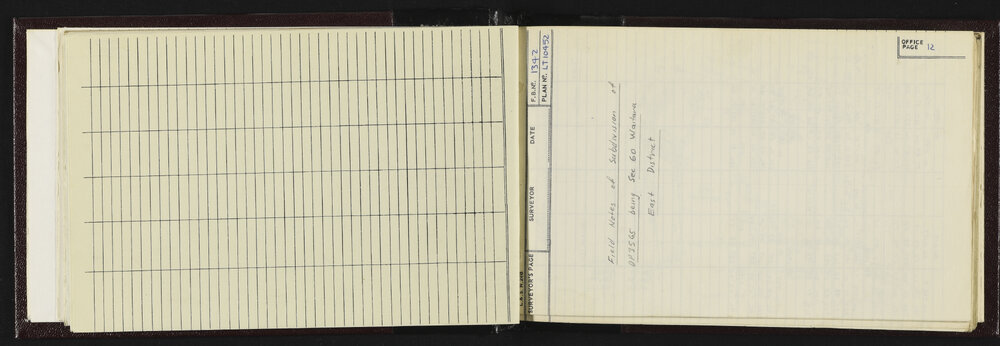 OFFICE
PAGE 12
F.B. Nº. 1342
PLAN Nº. LT 10452
DATE
SURVEYOR
SURVEYOR'S PAGE
Field Notes of Subdivision of
being Sec 60 Waitara
East District